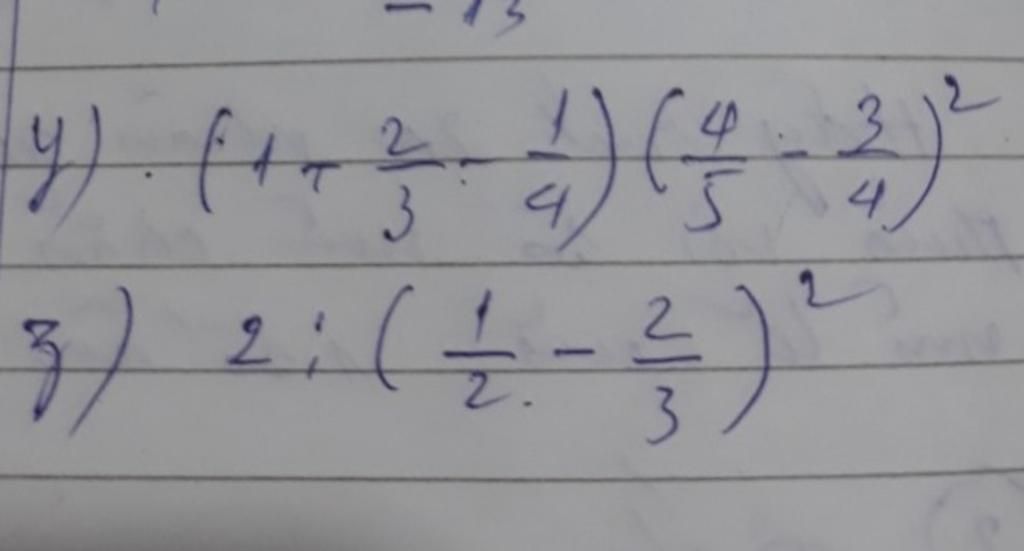 - 13
y) . (1 + 2/3 - 1/4) (4/5 - 3/4)²
z) 2 : (1/2 - 2/3)²